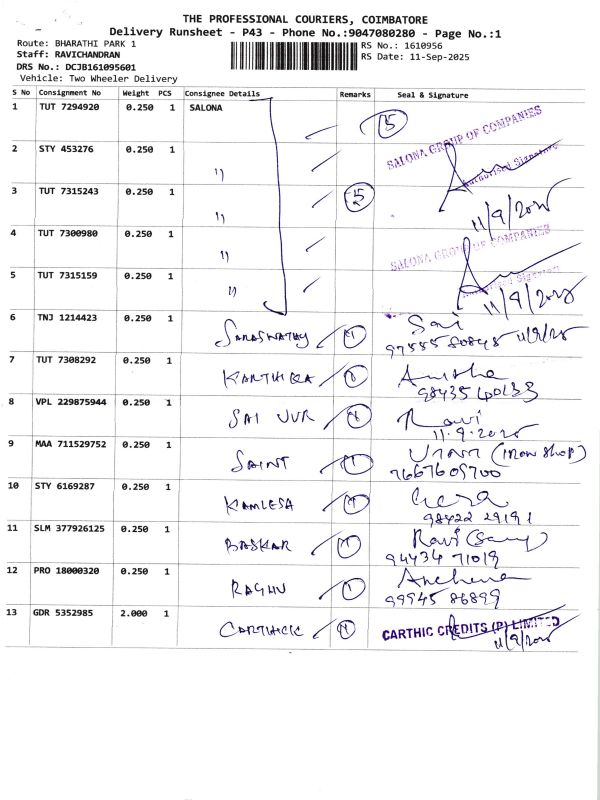 THE PROFESSIONAL COURIERS, COIMBATORE
Delivery Runsheet - P43 - Phone No.:9047080280 - Page No.:1
Route: BHARATHI PARK 1
Staff: RAVICHANDRAN
DRS No.: DCJB161095601
Vehicle: Two Wheeler Delivery
RS No.: 1610956
RS Date: 11-Sep-2025
S No Consignment No Weight PCS Consignee Details Remarks Seal & Signature
1 TUT 7294920 0.250 1 SALONA 5
SALONA GROUP OF COMPANIES
2 STY 453276 0.250 1 "
Authorised Signatory
3 TUT 7315243 0.250 1 " 5 11/9/2025
4 TUT 7300980 0.250 1 "
SALONA GROUP OF COMPANIES
5 TUT 7315159 0.250 1 "
Authorised Signatory
11/9/2025
6 TNJ 1214423 0.250 1 SARASWATHY Sai
11/9/25
7 TUT 7308292 0.250 1 KARTHIKA
98435 40133
8 VPL 229875944 0.250 1 SAI UUR Ravi
11.9.2025
9 MAA 711529752 0.250 1 SAINT (Iron Shop)
9667605700
10 STY 6169287 0.250 1 KAMLESA
98422 29191
11 SLM 377926125 0.250 1 BASKAR Ravi
94434 71019
12 PRO 18000320 0.250 1 RAGHU
99945 86899
13 GDR 5352985 2.000 1 CARTHICK CARTHIC CREDITS (P) LIMITED
11/9/2025